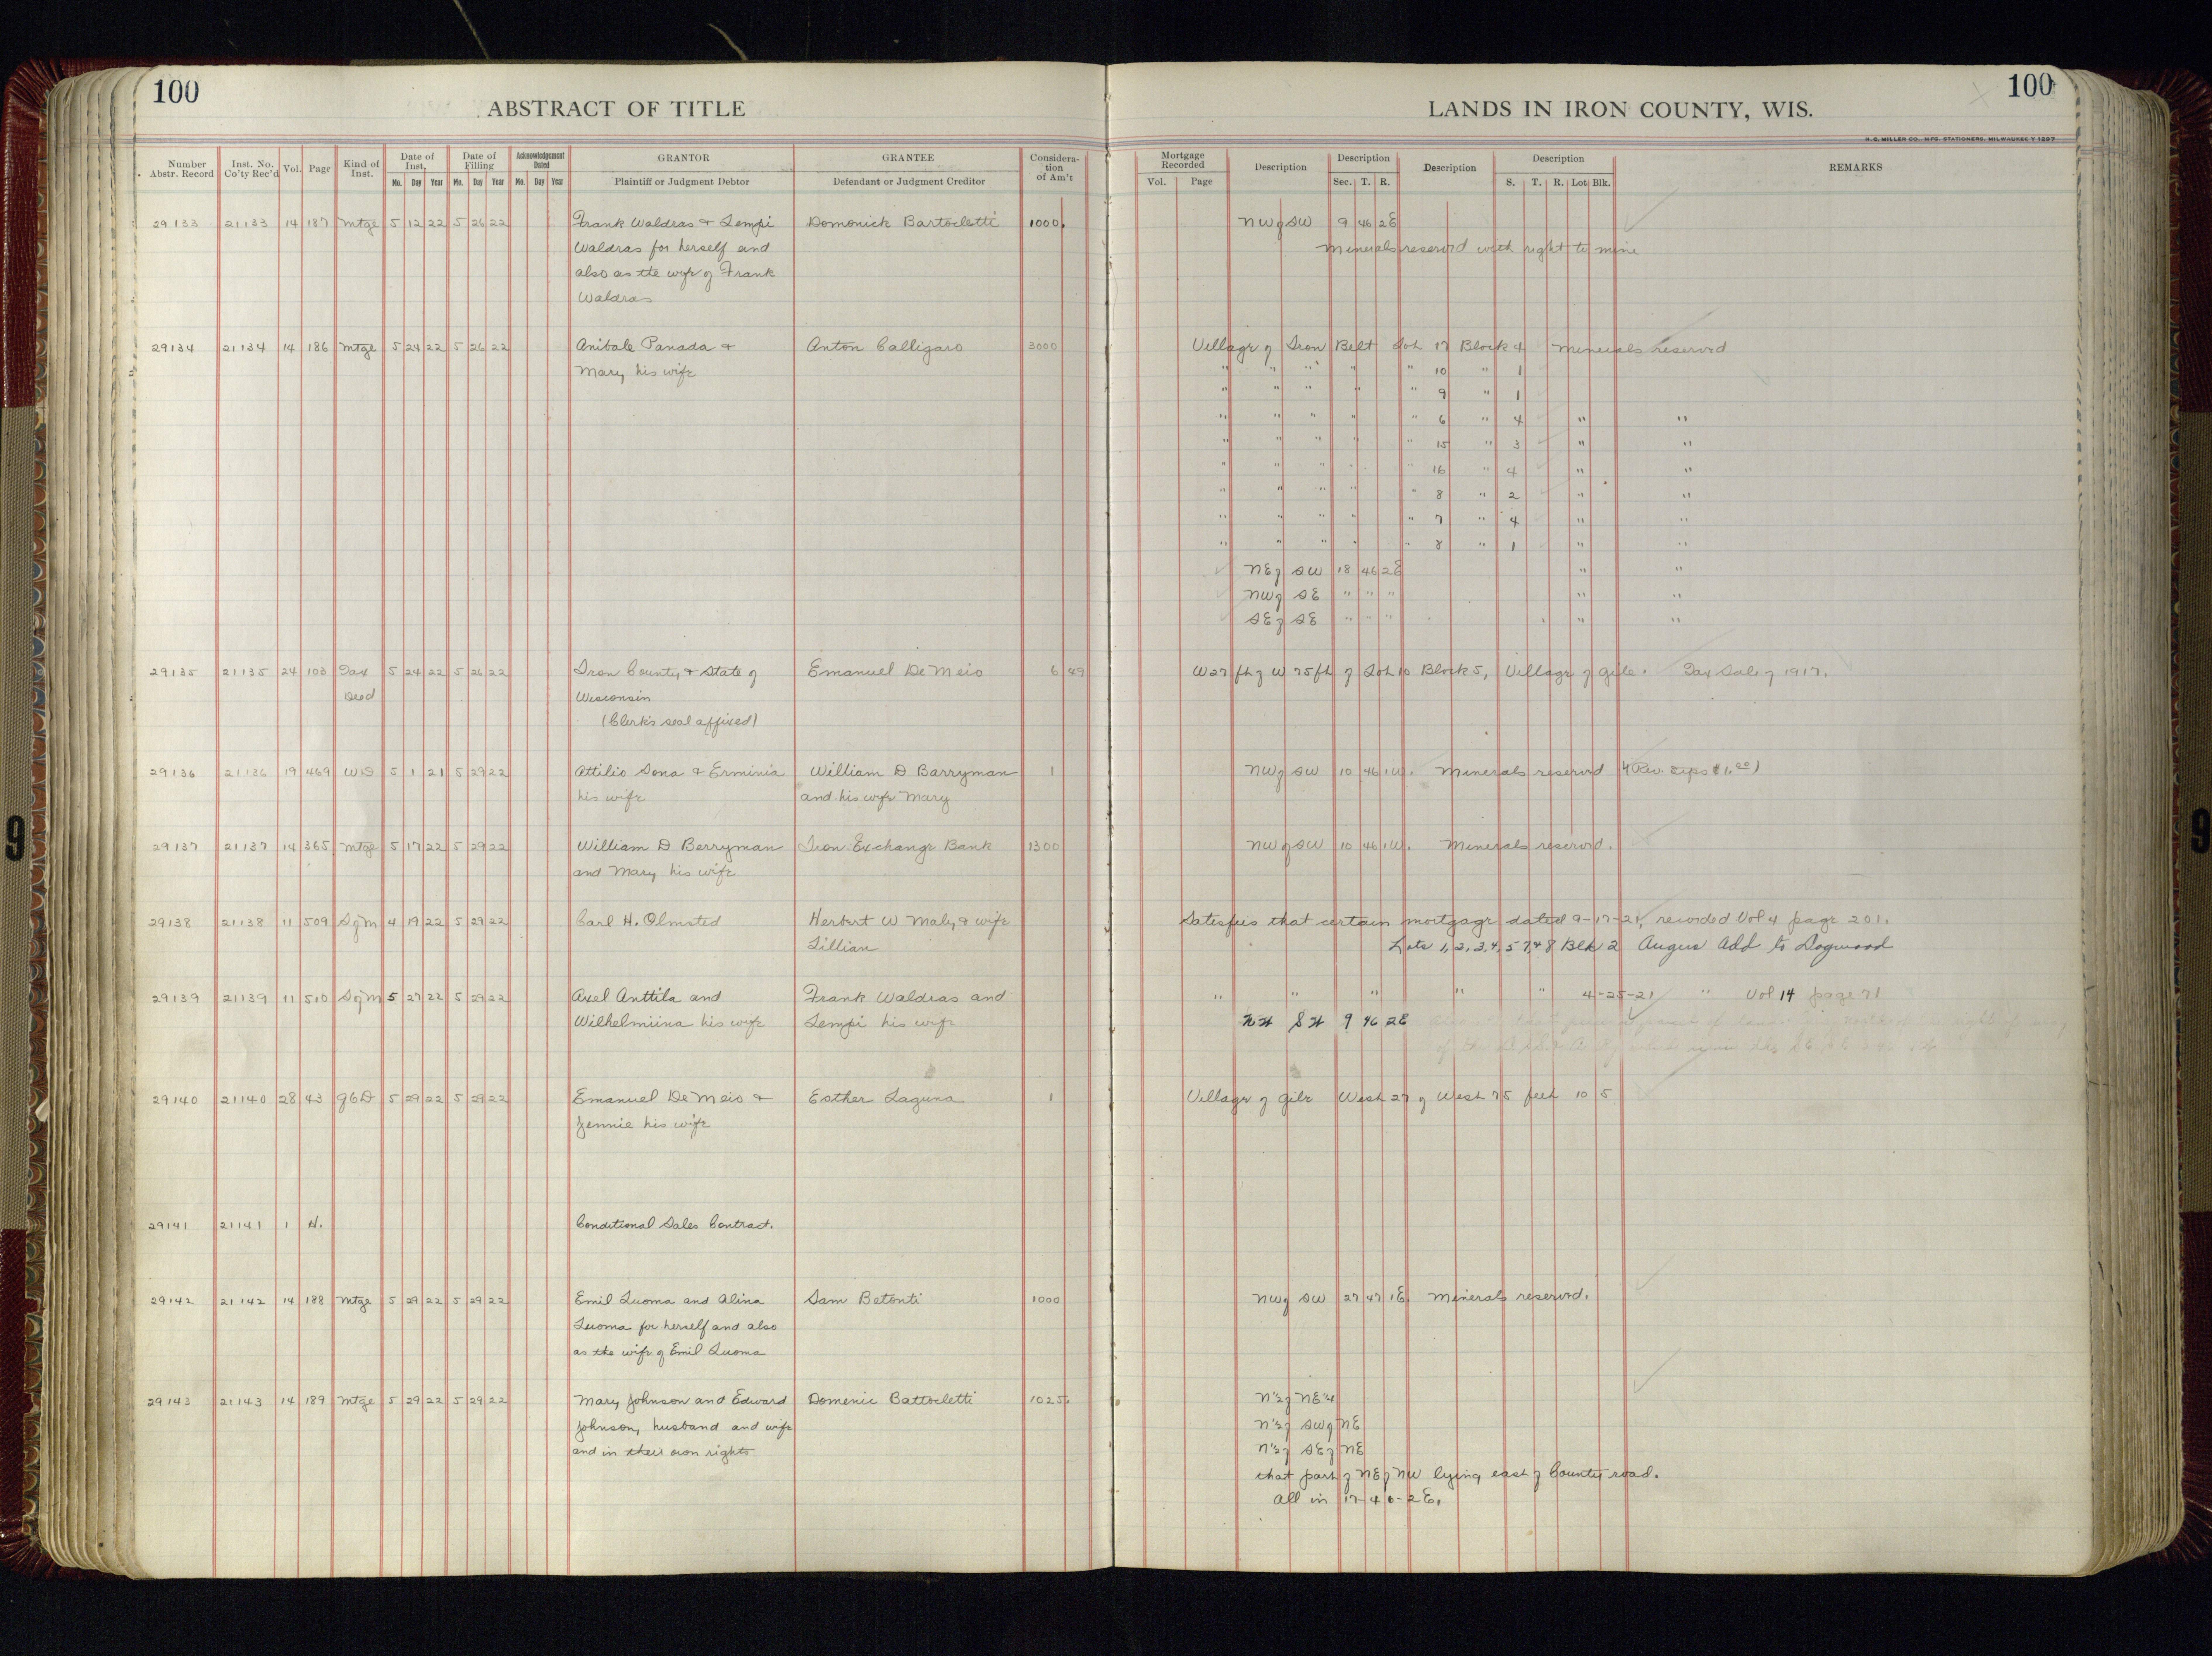 100
ABSTRACT OF TITLE
LANDS IN IRON COUNTY, WIS.
100
H. C. MILLER CO., MFG. STATIONERS, MILWAUKEE
Number Abstr. Record | Inst. No. Co'ty Rec'd | Vol. | Page | Kind of Inst. | Date of Inst. Mo. Day Year | Date of Filling Mo. Day Year | Acknowledgement Dated Mo. Day Year | GRANTOR Plaintiff or Judgment Debtor | GRANTEE Defendant or Judgment Creditor | Considera-tion of Am't
Mortgage Recorded Vol. Page | Description | Description Sec. T. R. | Description | Description S. T. R. Lot Blk. | REMARKS
29133 21133 14 187 Mtge 5 12 22 5 26 22 Frank Waldras & Lempi Domonick Bartocletti 1000. NW of SW 9 46 2E
Waldras for herself and Minerals reserv'd with right to mine
also as the wife of Frank
Waldras
29134 21134 14 186 Mtge 5 24 22 5 26 22 Anibale Panada & Anton Calligaro 3000 Village of Iron Belt Lot 17 Block 4 Minerals reserved
Mary his wife " " " " " 10 " 1
" " " " " 9 " 1
" " " " " 6 " 4 " "
" " " " " 15 " 3 " "
" " " " " 16 " 4 " "
" " " " " 8 " 2 " "
" " " " " 7 " 4 " "
" " " " " 8 " 1 " "
NE of SW 18 46 2E " "
NW of SE " " " " "
SE of SE " " " " "
29135 21135 24 103 Tax 5 24 22 5 26 22 Iron County & State of Emanuel De Meio 6 49 W 27 ft of W 75 ft of Lot 10 Block 5, Village of Gile. Tax Sale of 1917.
Deed Wisconsin
(Clerk's seal affixed)
29136 21136 19 469 WD 5 1 21 5 29 22 Attilio Sona & Erminia William D Barryman 1 NW of SW 10 46 1W. Minerals reserv'd (Rev. $1.00)
his wife and his wife Mary
29137 21137 14 365 Mtge 5 17 22 5 29 22 William D Berryman Iron Exchange Bank 1300 NW of SW 10 46 1W. Minerals reserv'd.
and Mary his wife
29138 21138 11 509 S of M 4 19 22 5 29 22 Carl H. Olmsted Herbert W Maly & wife Satisfies that certain mortgage dated 9-17-21, recorded Vol 4 page 201.
Lillian Lots 1, 2, 3, 4, 5 7, & 8 Blk 2 Angus Add to Dogwood
29139 21139 11 510 S of M 5 27 22 5 29 22 Axel Anttila and Frank Waldras and " " " " " 4-25-21 " Vol 14 page 71
Wilhelmiina his wife Lempi his wife NW SW 9 46 2E
29140 21140 28 43 QCD 5 29 22 5 29 22 Emanuel De Meio & Esther Laguna 1 Village of Gile West 27 of West 75 feet 10 5
Jennie his wife
29141 21141 1 H. Conditional Sales Contract.
29142 21142 14 188 Mtge 5 29 22 5 29 22 Emil Luoma and Alina Sam Betonti 1000 NW of SW 27 47 1E. Minerals reserv'd.
Luoma for herself and also
as the wife of Emil Luoma
29143 21143 14 189 Mtge 5 29 22 5 29 22 Mary Johnson and Edward Domenic Battocletti 1025. N½ of NE¼
Johnson, husband and wife N½ of SW of NE
and in their own rights N½ of SE of NE
that part of NE of NW lying east of County road.
All in 17-46-2E.
9
9